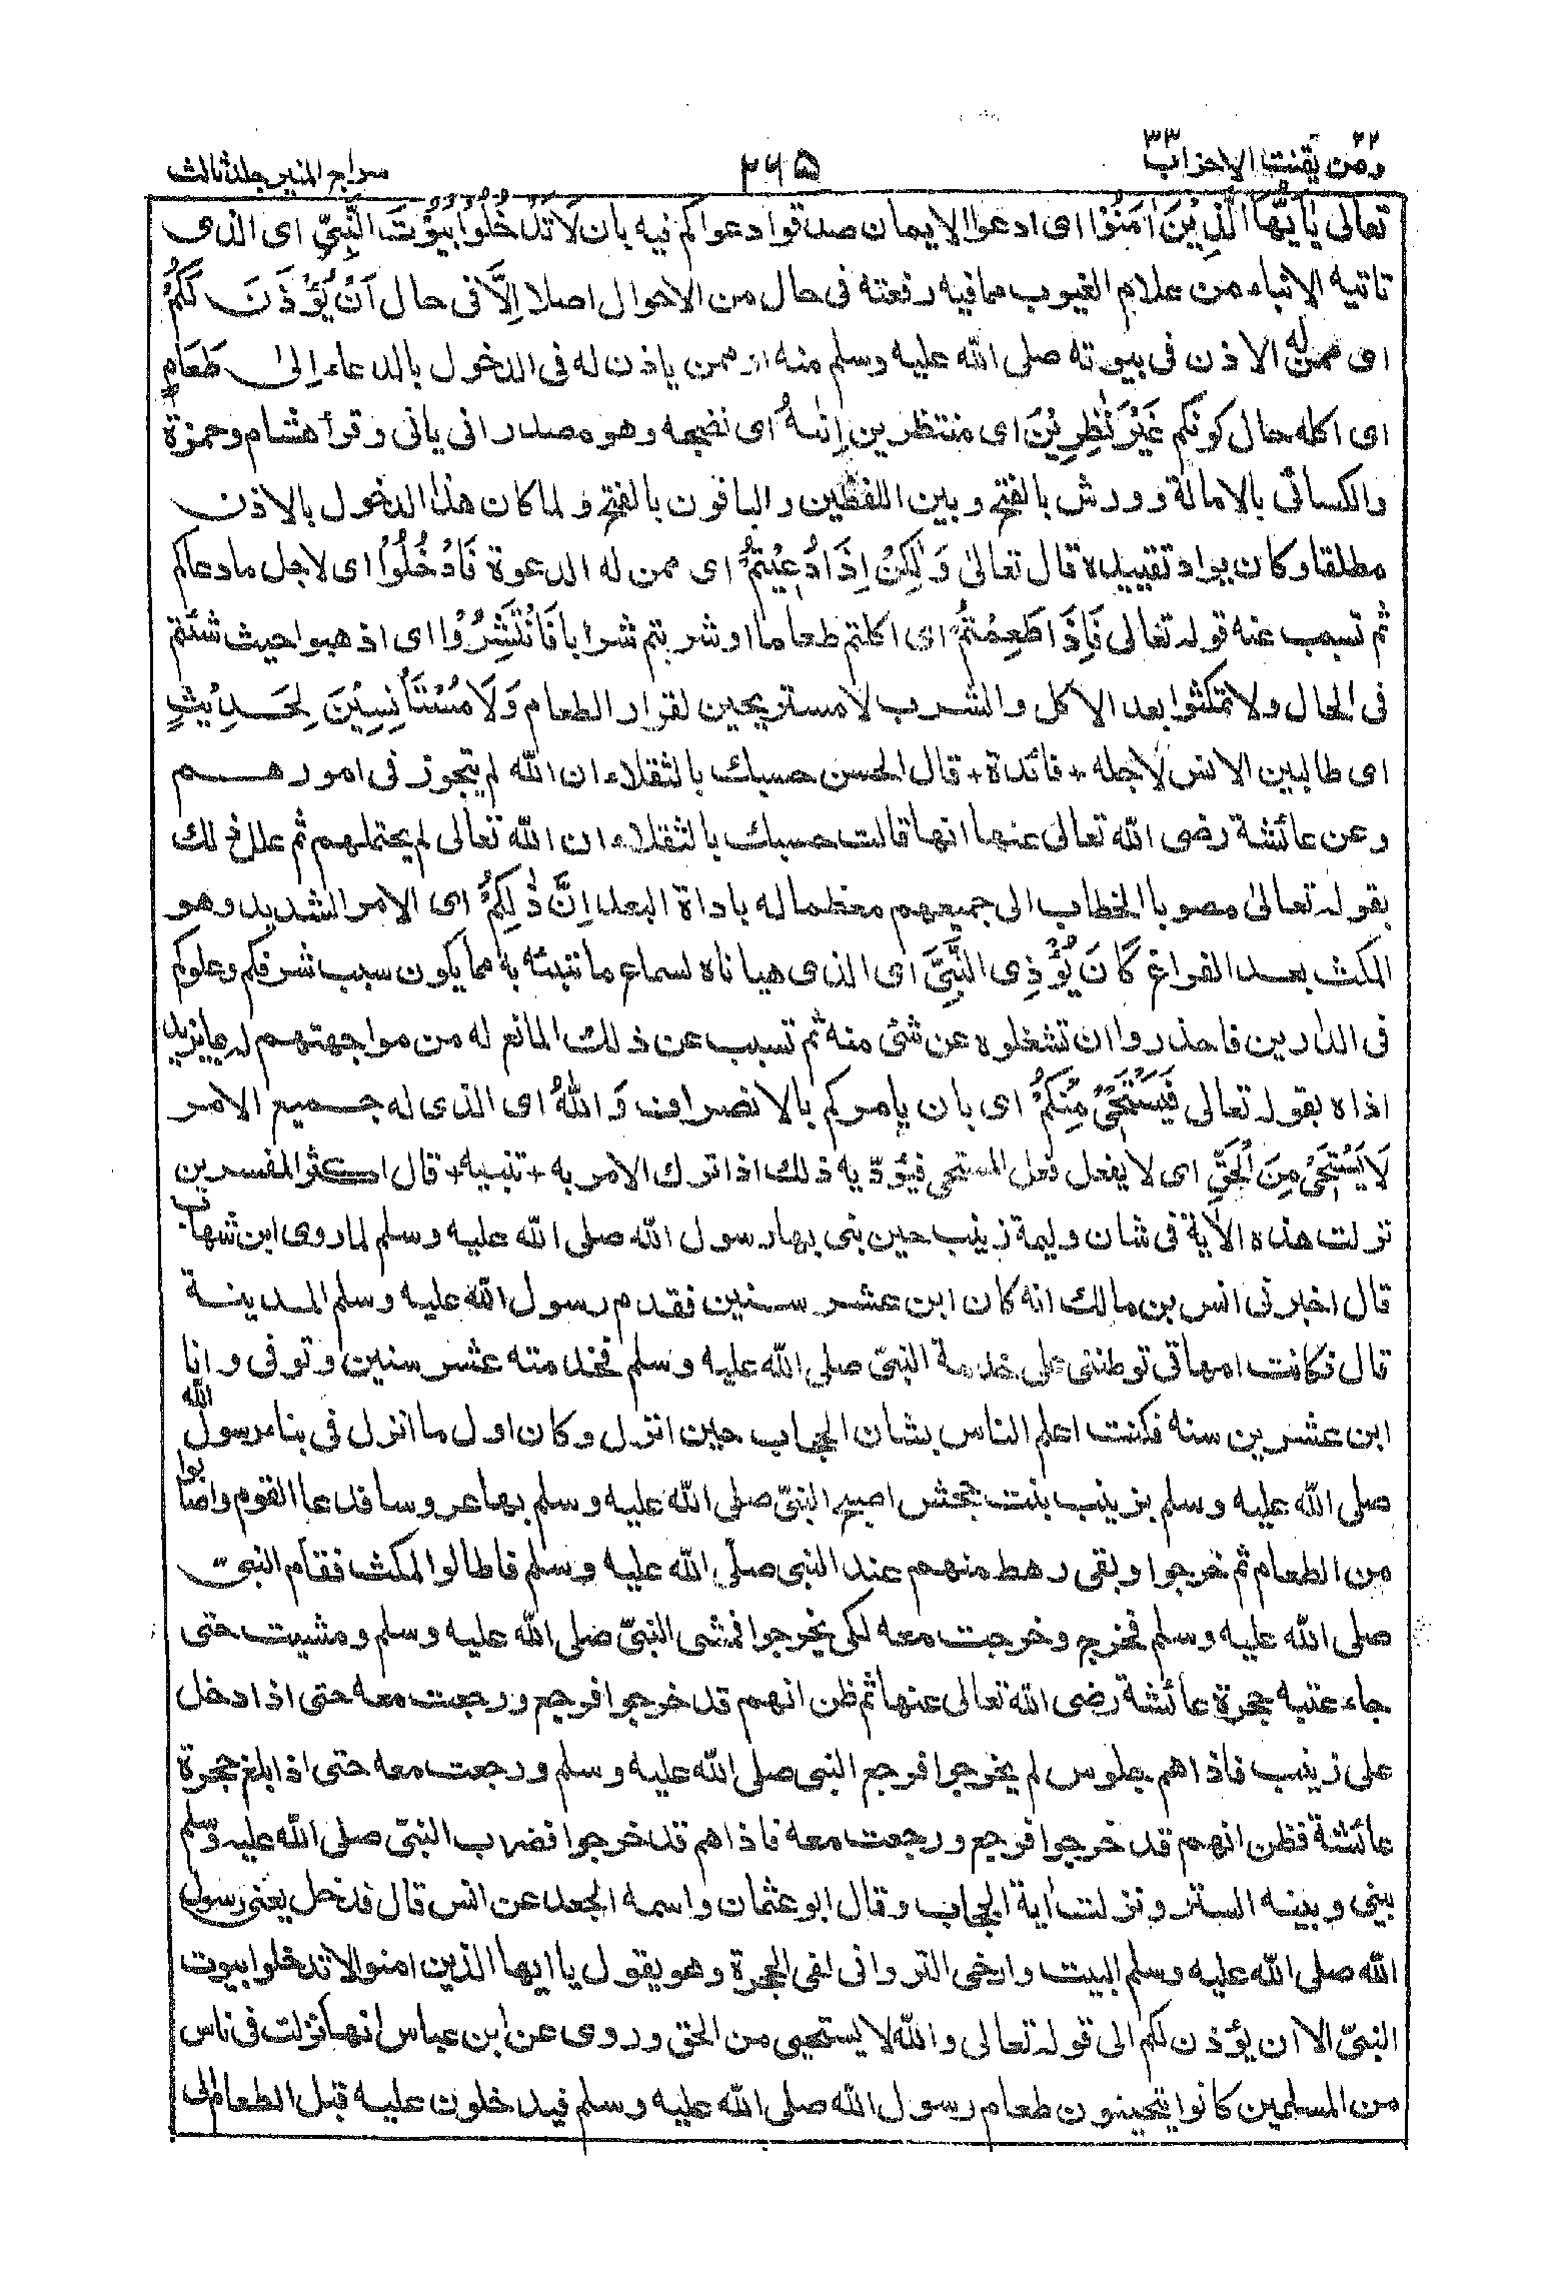 ومن يقنت ٢٢ الاحزاب ٣٣
٢٦۵
سراج المنير جلد ثالث
تعالى يٰاَيُّهَا الَّذِيْنَ اٰمَنُوْا اى ادعوا الايمان صدقوا دعواكم فيه بان لَا تَدْخُلُوْا بُيُوْتَ النَّبِيِّ اى الذى
تاتيه الانباء من علام الغيوب مما فيه رفعته فى حال من الاحوال اصلا اِلَّا فى حال اَنْ يُّؤْذَنَ لَكُمْ
اى ممن له الاذن فى بيوته صلى الله عليه وسلم منه او ممن ياذن له فى الدخول بالدعاء اِلىٰ طَعَامٍ
اى اكله حال كونكم غَيْرَ نٰظِرِيْنَ اى منتظرين اِنٰىهُ اى نضجه وهو مصدر انى يانى وقرأ هشام وحمزة
والكسائى بالامالة وورش بالفتح وبين اللفظين والباقون بالفتح ولما كان هذا الدخول بالاذن
مطلقا وكان يراد تقييده قال تعالىٰ وَلٰكِنْ اِذَا دُعِيْتُمْ اى ممن له الدعوة فَادْخُلُوْا اى لاجل ما دعاكم
ثم تسبب عنه قوله تعالى فَاِذَا طَعِمْتُمْ اى اكلتم طعاما او شربتم شرابا فَانْتَشِرُوْا اى اذهبوا حيث شئتم
فى الحال ولا تمكثوا بعد الاكل والشرب لا مستريحين لقرار الطعام وَلَا مُسْتَأْنِسِيْنَ لِحَدِيْثٍ
اى طالبين الانس لاجله + فائدة + قال الحسن حسبك بالثقلاء ان الله لم يتجوز فى امورهم
وعن عائشة رضى الله تعالى عنها انها قالت حسبك بالثقلاء ان الله تعالى لم يحتملهم ثم علل ذلك
بقوله تعالىٰ مصوبا الخطاب الى جميعهم معظما له باداة البعد اِنَّ ذٰلِكُمْ اى الامر الشديد وهو
المكث بعد الفراغ كَانَ يُؤْذِى النَّبِيَّ اى الذى هياناه لسماع ما ننبئه به مما يكون سبب شرفكم وعلوكم
فى الدارين فاحذروا ان تشغلوه عن شئ منه ثم تسبب عن ذلك المانع له من مواجهتهم له بما يزيد
اذاه بقوله تعالى فَيَسْتَحْيٖ مِنْكُمْ اى بان يامركم بالانصراف وَاللّٰهُ اى الذى له جميع الامر
لَا يَسْتَحْيٖ مِنَ الْحَقِّ اى لا يفعل فعل المستحى فيؤديه ذلك اذا ترك الامر به + تنبيه + قال اكثر المفسرين
نزلت هذه الاٰية فى شان وليمة زينب حين بنى بها رسول الله صلى الله عليه وسلم لما روى ابن شهاب
قال اخبرنى انس بن مالك انه كان ابن عشر سنين فقدم رسول الله عليه وسلم المدينة
قال فكانت امهاتى توطننى على خدمة النبى صلى الله عليه وسلم فخدمته عشر سنين وتوفى وانا
ابن عشرين سنه فكنت اعلم الناس بشان الحجاب حين انزل وكان اول ما انزل فى بناء رسول الله
صلى الله عليه وسلم بزينب بنت جحش اصبح النبى صلى الله عليه وسلم بها عروسا فدعا القوم واصابوا
من الطعام ثم خرجوا وبقى رهط منهم عند النبى صلى الله عليه وسلم فاطالوا المكث فقام النبى
صلى الله عليه وسلم فخرج وخرجت معه لكى يخرجوا فمشى النبى صلى الله عليه وسلم ومشيت حتى
جاء عتبه حجرة عائشة رضى الله تعالى عنها ثم ظن انهم قد خرجوا فرجع ورجعت معه حتى اذا دخل
على زينب فاذاهم جلوس لم يخرجوا فرجع النبى صلى الله عليه وسلم ورجعت معه حتى اذا بلغ حجرة
عائشة فظن انهم قد خرجوا فرجع ورجعت معه فاذاهم قد خرجوا فضرب النبى صلى الله عليه وسلم
بينى وبينه الستر ونزلت اٰية الحجاب وقال ابو عثمان واسمه الجعد عن انس قال فدخل يعنى رسول
الله صلى الله عليه وسلم البيت وارخى الستر وانى لفى الحجرة وهو يقول يا ايها الذين امنوا لا تدخلوا بيوت
النبى الا ان يؤذن لكم الى قوله تعالى والله لا يستحيى من الحق وروى عن ابن عباس انها نزلت فى ناس
من المسلمين كانوا يتحينون طعام رسول الله صلى الله عليه وسلم فيدخلون عليه قبل الطعام الى